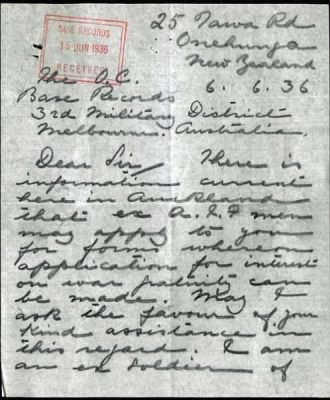 25 Tawa Rd
Onehunga
New Zealand
BASE RECORDS
15 JUN 1936
RECEIVED
6. 6. 36
The O.C.
Base Records
3rd Military District
Melbourne. Australia.
Dear Sir, There is
information current
here in Auckland
that ex A.I.F men
may apply to you
for forms whereon
application for interest
on war gratuity can
be made. May I
ask the favour of your
kind assistance in
this regard. I am
an ex soldier of